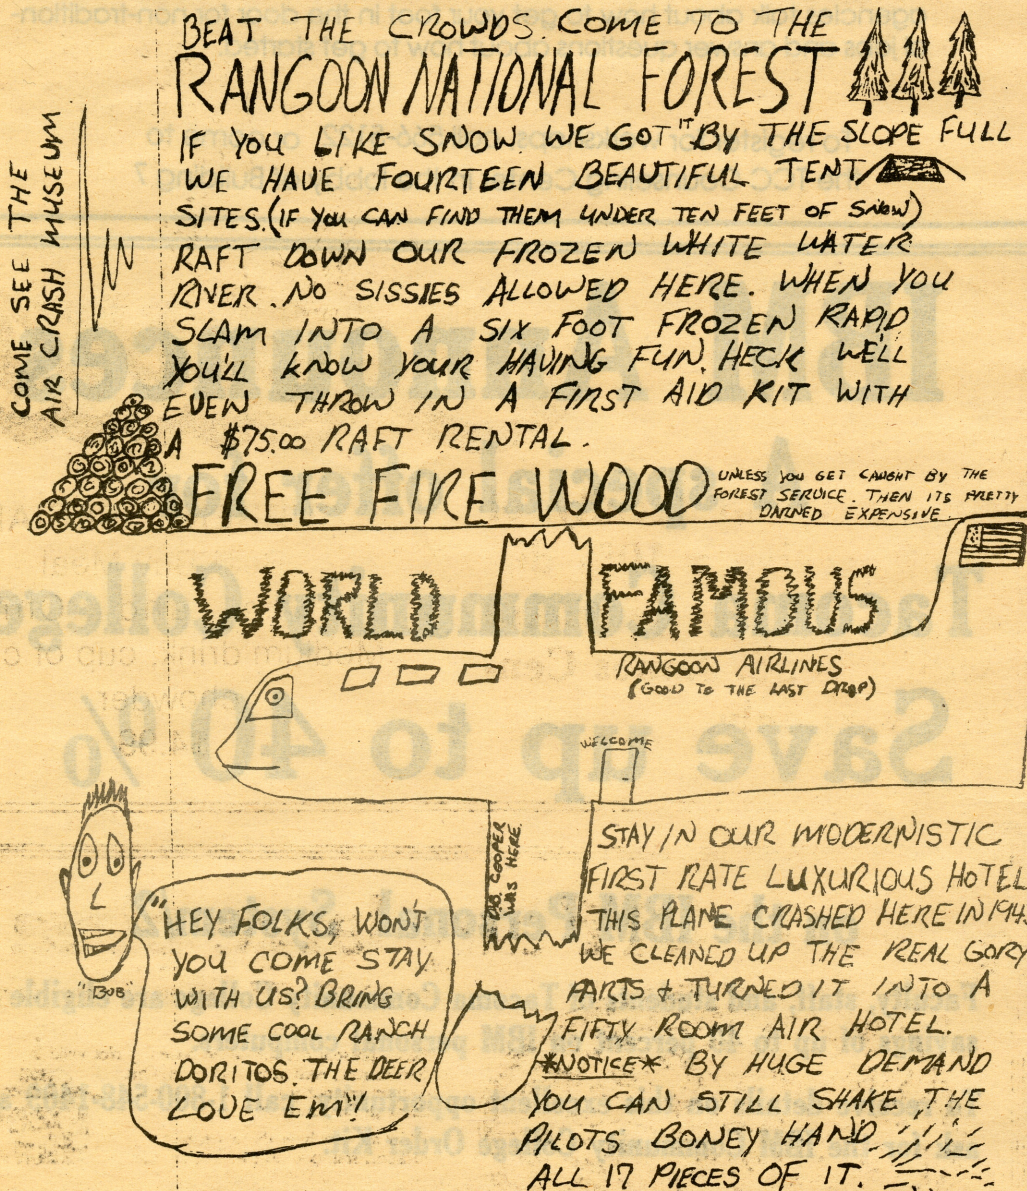 BEAT THE CROWDS. COME TO THE
RANGOON NATIONAL FOREST
IF YOU LIKE SNOW. WE GOT "IT" BY THE SLOPE FULL
WE HAVE FOURTEEN BEAUTIFUL TENT
SITES. (IF YOU CAN FIND THEM UNDER TEN FEET OF SNOW)
RAFT DOWN OUR FROZEN WHITE WATER
RIVER. NO SISSIES ALLOWED HERE. WHEN YOU
SLAM INTO A SIX FOOT FROZEN RAPID
YOU'LL KNOW YOUR HAVING FUN. HECK WE'LL
EVEN THROW IN A FIRST AID KIT WITH
A $75.00 RAFT RENTAL.
COME SEE THE
AIR CRASH MUSEUM
FREE FIRE WOOD
UNLESS YOU GET CAUGHT BY THE
FOREST SERVICE. THEN ITS PRETTY
DARNED EXPENSIVE.
WORLD FAMOUS
RANGOON AIRLINES
(GOOD TO THE LAST DROP)
WELCOME
D.B. COOPER
WAS HERE.
STAY IN OUR MODERNISTIC
FIRST RATE LUXURIOUS HOTEL
THIS PLANE CRASHED HERE IN 194
WE CLEANED UP THE REAL GORY
PARTS + TURNED IT INTO A
FIFTY ROOM AIR HOTEL.
*NOTICE* BY HUGE DEMAND
YOU CAN STILL SHAKE THE
PILOTS BONEY HAND
ALL 17 PIECES OF IT.
"HEY FOLKS, WON'T
YOU COME STAY
WITH US? BRING
SOME COOL RANCH
DORITOS. THE DEER
LOVE EM"!
"BOB
Save up to 40%